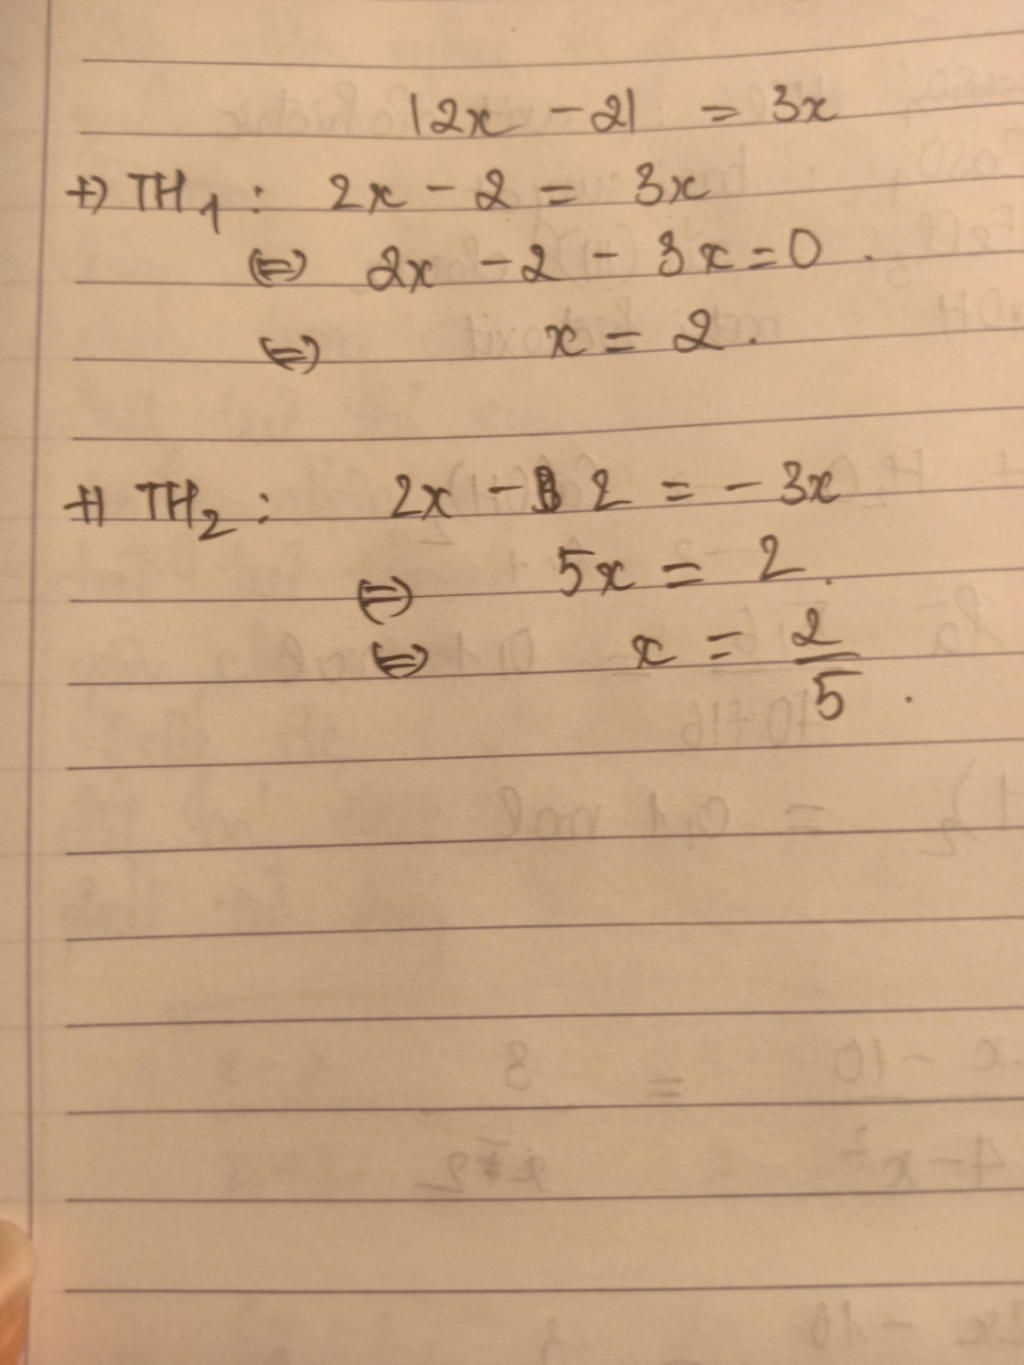 |2x - 2| = 3x
+) TH1 : 2x - 2 = 3x
⇔ 2x - 2 - 3x = 0 .
⇔ x = 2 .
+) TH2 : 2x - 2 = - 3x
⇔ 5x = 2 .
⇔ x = 2/5 .